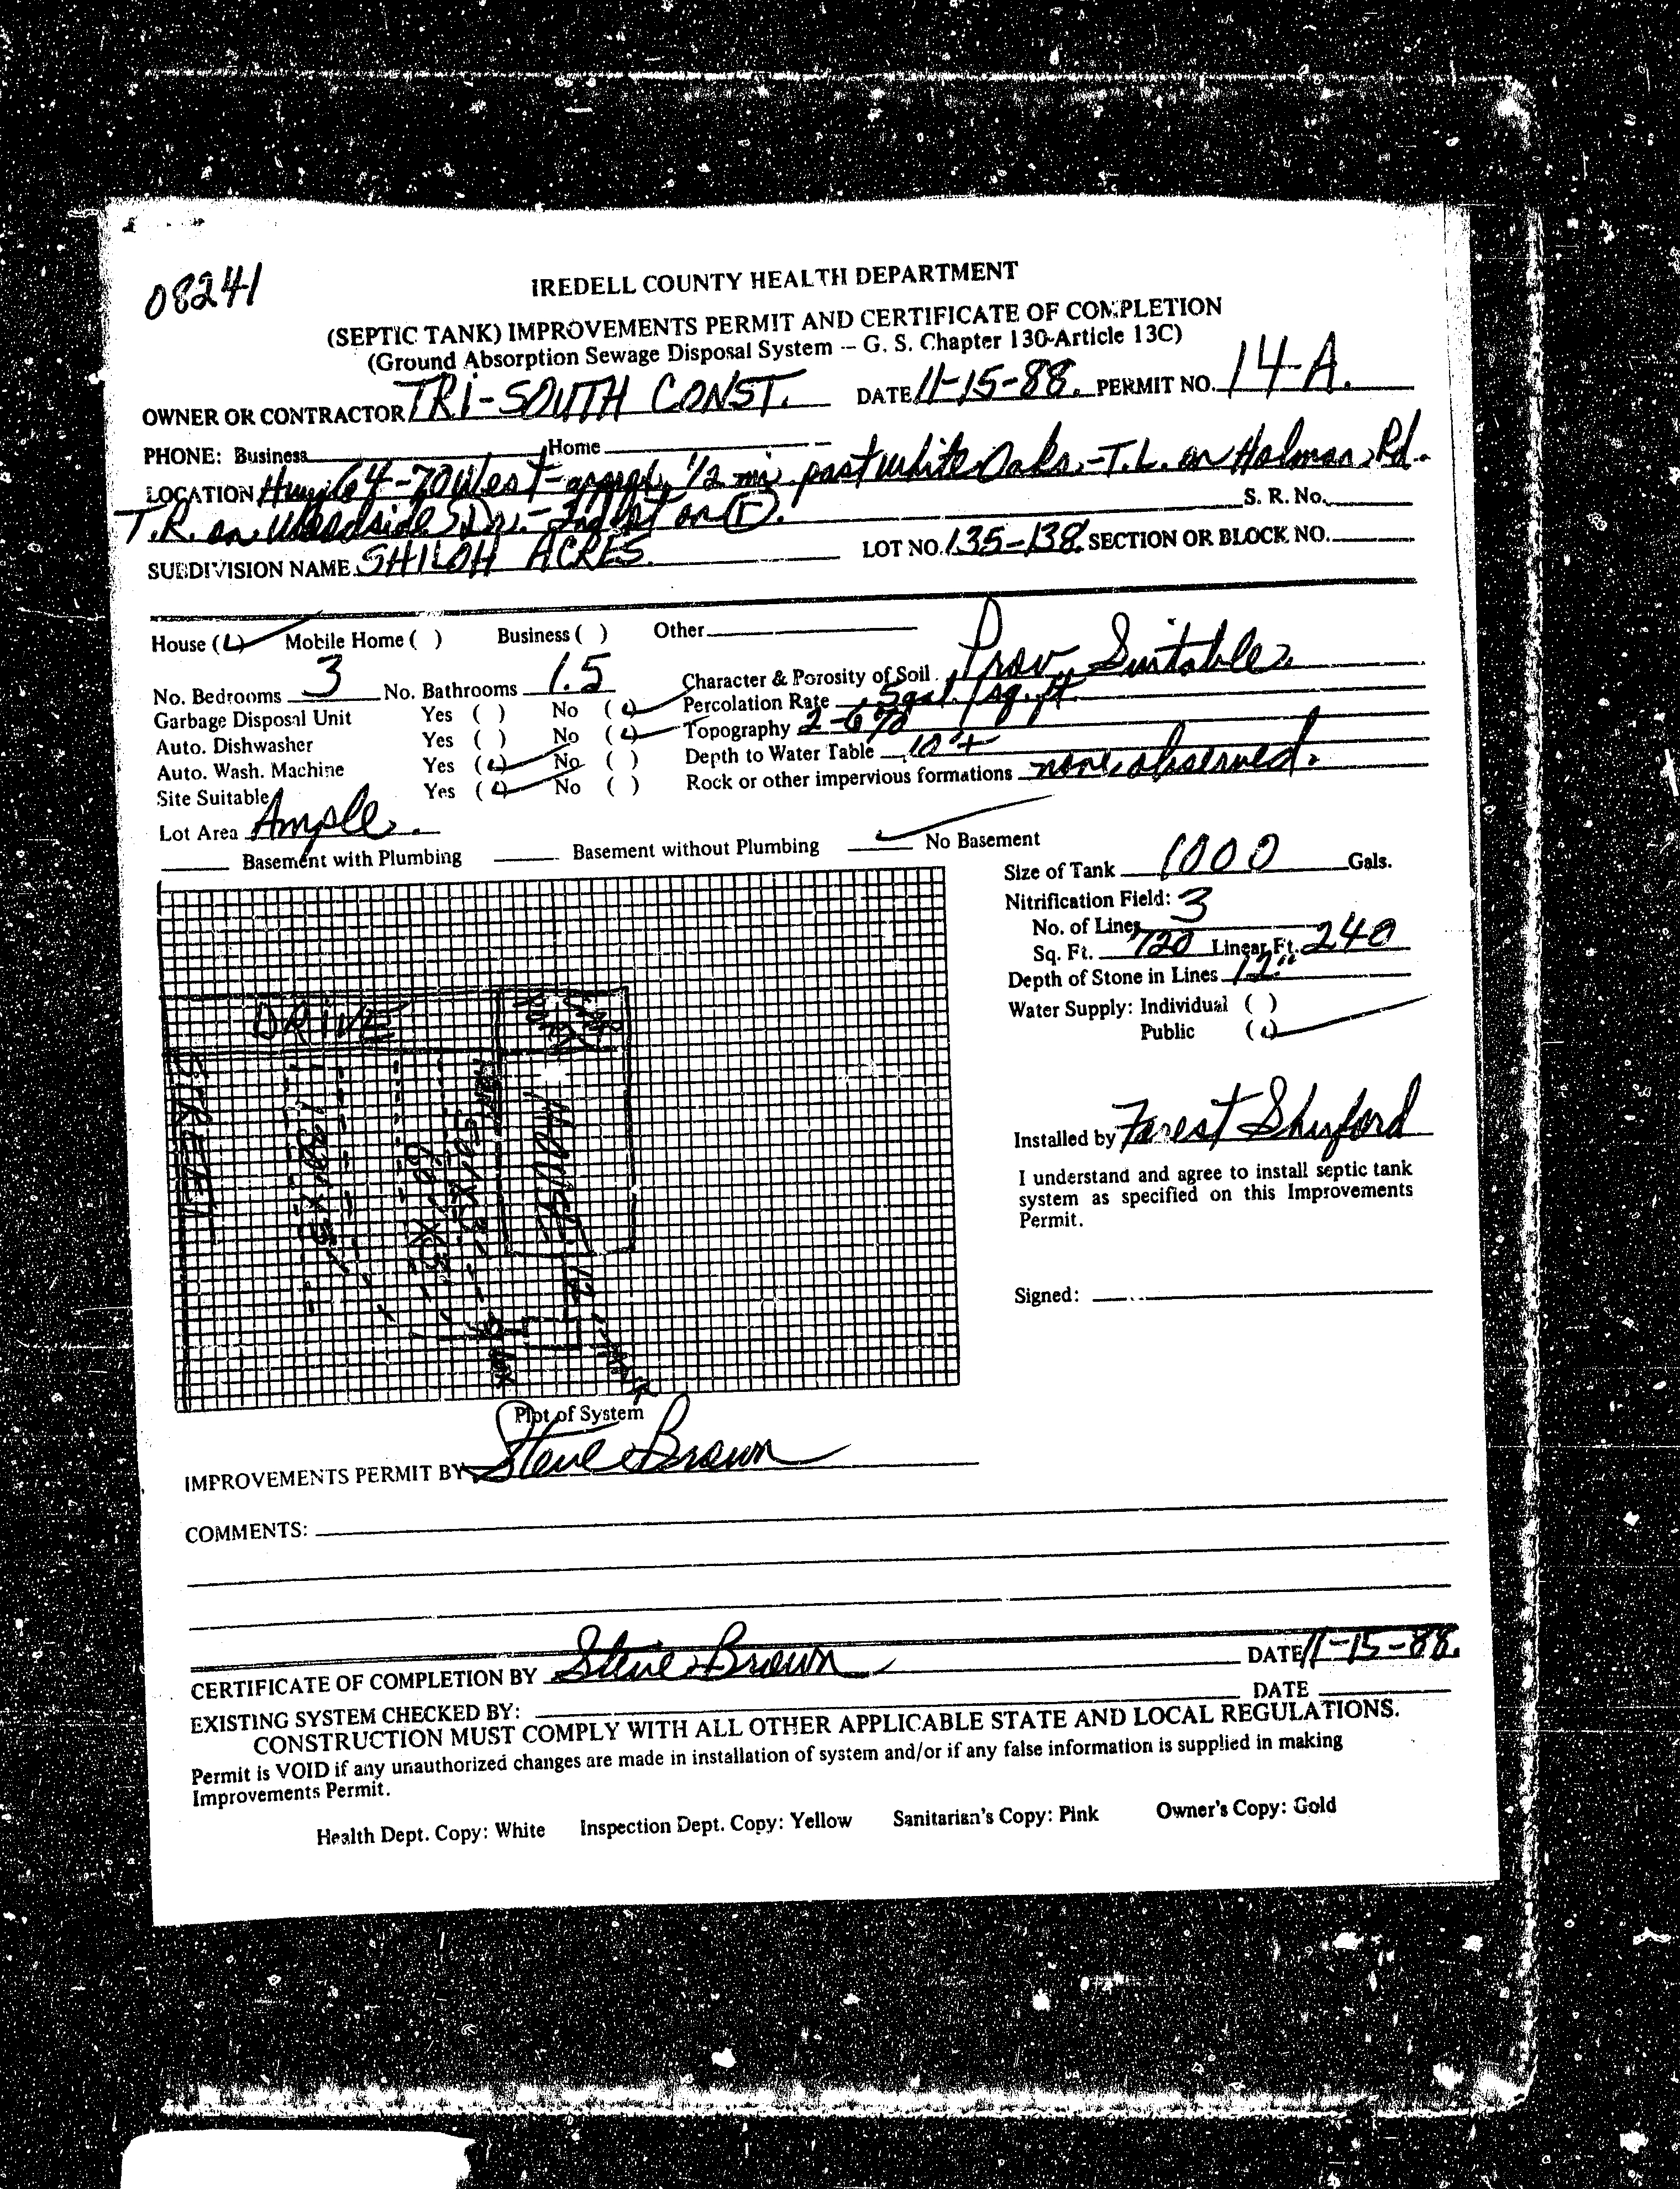 08241
IREDELL COUNTY HEALTH DEPARTMENT
(SEPTIC TANK) IMPROVEMENTS PERMIT AND CERTIFICATE OF COMPLETION
(Ground Absorption Sewage Disposal System -- G. S. Chapter 130-Article 13C)
OWNER OR CONTRACTOR TRI-SOUTH CONST. DATE 11-15-88. PERMIT NO. 14-A.
PHONE: Business Home
LOCATION Hwy 64-70 West - approx. 1/2 mi. past white Oaks - T.L. on Holman Rd.
T.R. on Woodside Dr. - 2nd lot on r. S. R. No.
SUBDIVISION NAME SHILOH ACRES. LOT NO. 135-138. SECTION OR BLOCK NO.
House ( ) Mobile Home ( ) Business ( ) Other
No. Bedrooms 3 No. Bathrooms 1.5 Character & Porosity of Soil Prov. Suitable.
Garbage Disposal Unit Yes ( ) No ( ) Percolation Rate .5 gal./sq.ft.
Auto. Dishwasher Yes ( ) No ( ) Topography 2-6%
Auto. Wash. Machine Yes ( ) No ( ) Depth to Water Table 10'+
Site Suitable Yes ( ) No ( ) Rock or other impervious formations none observed.
Lot Area Ample.
Basement with Plumbing Basement without Plumbing No Basement
Size of Tank 1000 Gals.
Nitrification Field: 3
No. of Lines
Sq. Ft. 720 Linear Ft. 240
Depth of Stone in Lines 12"
Water Supply: Individual ( )
Public ( )
DRIVE
STREET
HOUSE
Installed by Forest Shuford
I understand and agree to install septic tank
system as specified on this Improvements
Permit.
Signed:
Plot of System
IMPROVEMENTS PERMIT BY Steve Brown
COMMENTS:
CERTIFICATE OF COMPLETION BY Steve Brown DATE 11-15-88.
EXISTING SYSTEM CHECKED BY: DATE
CONSTRUCTION MUST COMPLY WITH ALL OTHER APPLICABLE STATE AND LOCAL REGULATIONS.
Permit is VOID if any unauthorized changes are made in installation of system and/or if any false information is supplied in making
Improvements Permit.
Health Dept. Copy: White Inspection Dept. Copy: Yellow Sanitarian's Copy: Pink Owner's Copy: Gold